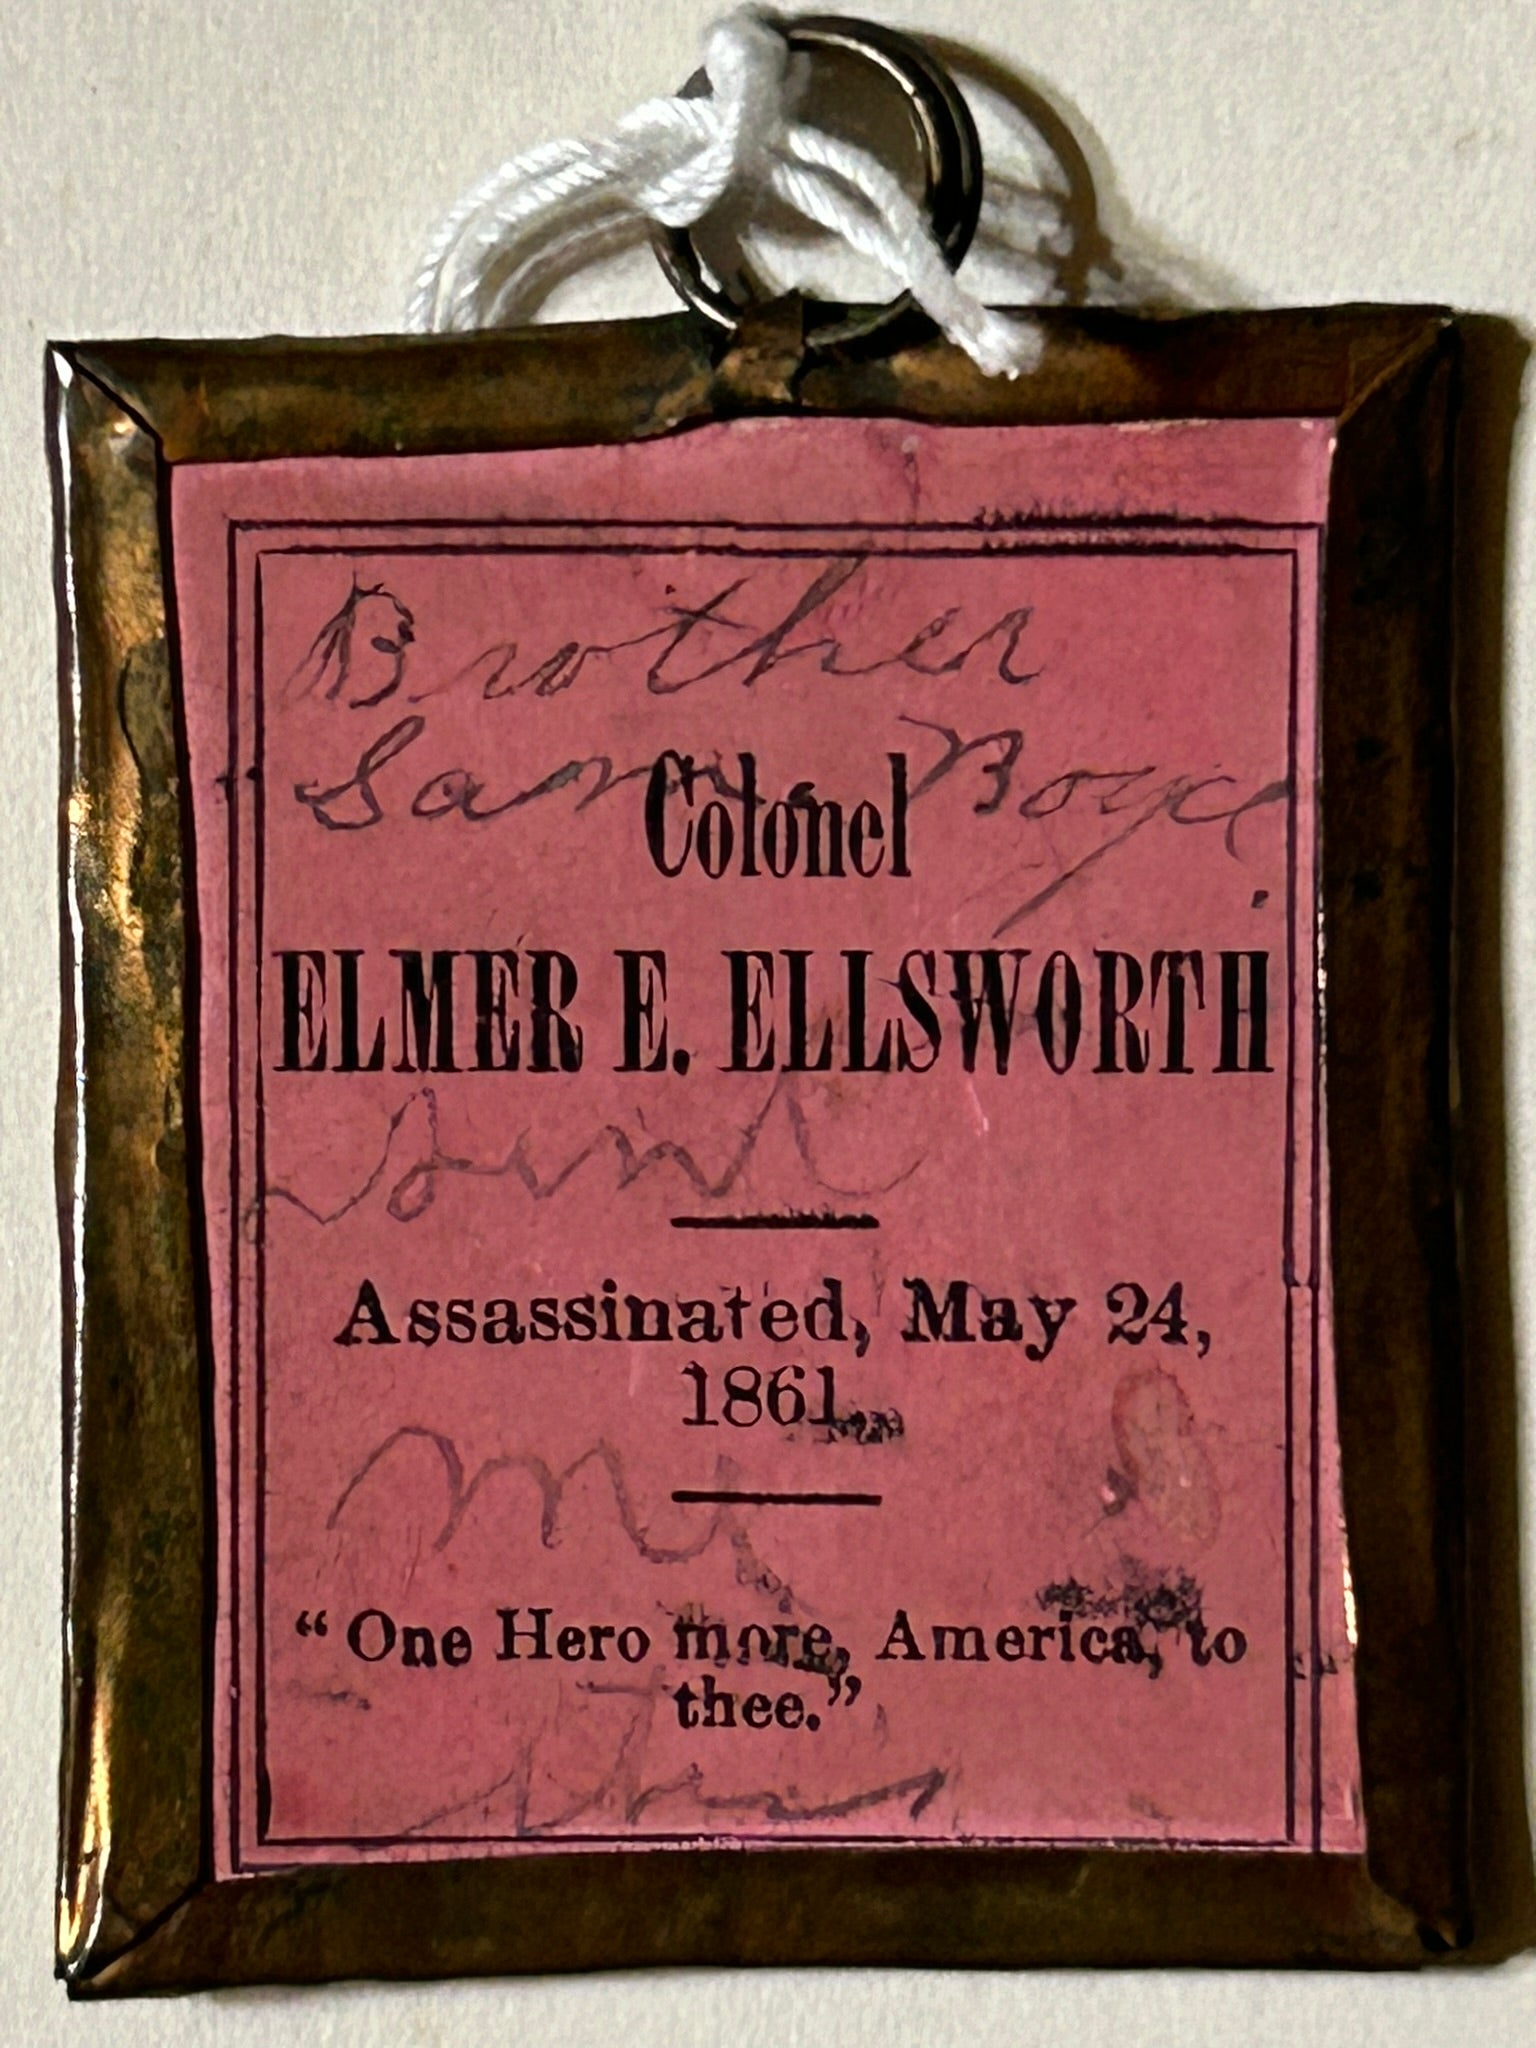 Brother
Sam. Boyce
Colonel
ELMER E. ELLSWORTH
Sent
Assassinated, May 24,
1861.
me
“One Hero more, America, to
thee.”
this